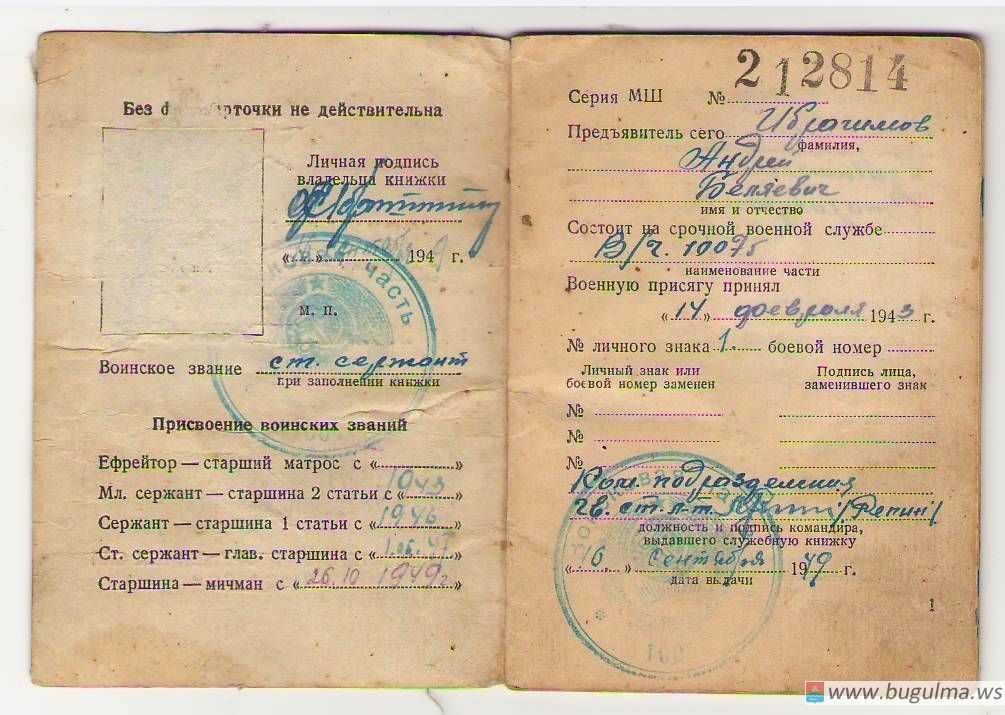 Без рточки не действительна
Личная подпись
владельца книжки
194 г.
м. п.
Воинское звание ст. сержант
при заполнении книжки
Присвоение воинских званий
Ефрейтор — старший матрос с «»
Мл. сержант — старшина 2 статьи с « 1943 »
Сержант — старшина 1 статьи с « 1946 »
Ст. сержант — глав. старшина с « 1.06.47 »
Старшина — мичман с « 26.10 1949г »
часть
212814
Серия МШ №
Предъявитель сего Ибрагимов
фамилия,
Андрей
Беляевич
имя и отчество
Состоит на срочной военной службе
В/ч. 10075
наименование части
Военную присягу принял
«14» февраля 1943 г.
№ личного знака 1. боевой номер
Личный знак или Подпись лица,
боевой номер заменен заменившего знак
№
№
№
Ком. подразделения
ст. л-т /Репин/
должность и подпись командира,
выдавшего служебную книжку
«6.» сентября 1949 г.
дата выдачи
1
www.bugulma.ws